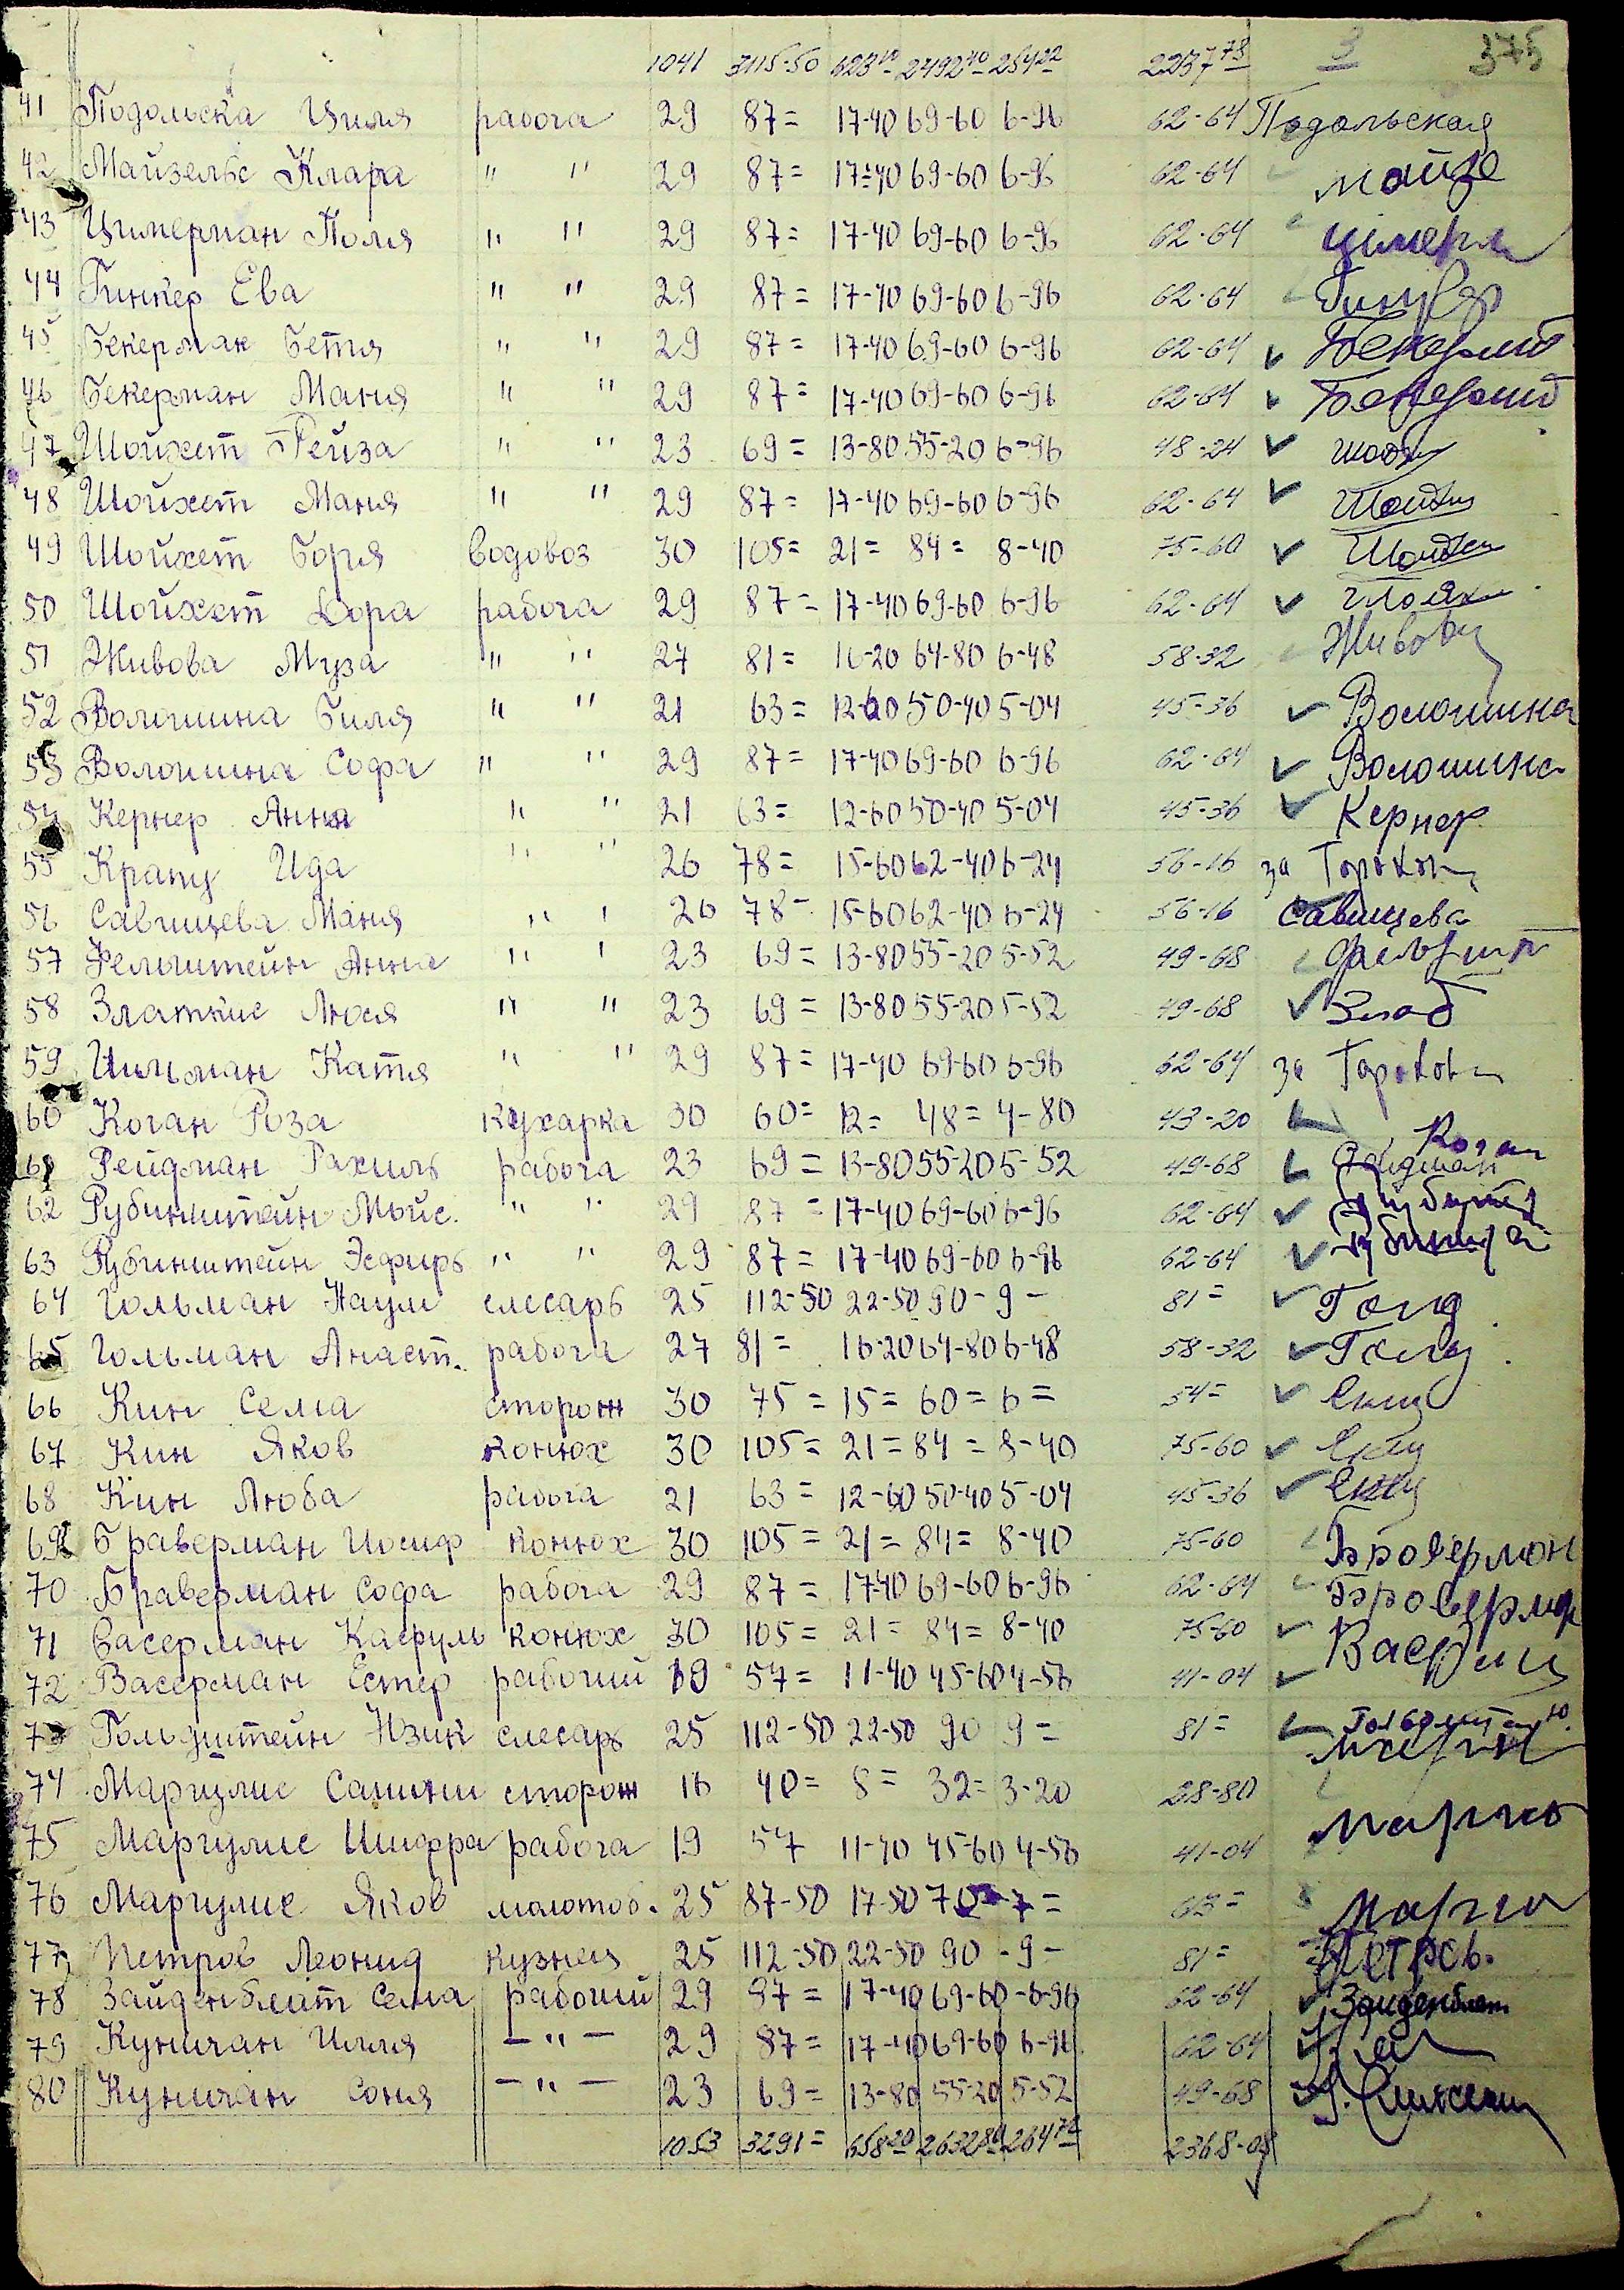 1041 3115-50 623 10 2492 40 254 22 2237 78 3 375
41 Подольска Циля работа 29 87= 17-40 69-60 6-96 62-64 Подольская
42 Майзельс Клара " " 29 87= 17-40 69-60 6-96 62-64 майзе
43 Цимерман Поля " " 29 87= 17-40 69-60 6-96 62-64 цимерм
44 Гинкер Ева " " 29 87= 17-40 69-60 6-96 62-64
45 Бекерман Бетя " " 29 87= 17-40 69-60 6-96 62-64
46 Бекерман Маня " " 29 87= 17-40 69-60 6-96 62-64
47 Шойхет Рейза " " 23 69= 13-80 55-20 6-96 48-24
48 Шойхет Маня " " 29 87= 17-40 69-60 6-96 62-64
49 Шойхет Боря водовоз 30 105= 21= 84= 8-40 75-60
50 Шойхет Дора работа 29 87= 17-40 69-60 6-96 62-64
51 Живова Муза " " 27 81= 16-20 64-80 6-48 58-32 Живову
52 Волошина Биля " " 21 63= 12-60 50-40 5-04 45-36 Волошина
53 Волошина Софа " " 29 87= 17-40 69-60 6-96 62-64 Волошина
54 Кернер Анна " " 21 63= 12-60 50-40 5-04 45-36 Кернер
55 Крапу Ида " " 26 78= 15-60 62-40 6-24 56-16 за
56 Савищева Маня " " 26 78- 15-60 62-40 6-24 56-16 Савищева
57 Фельштейн Анна " " 23 69= 13-80 55-20 5-52 49-68
58 Златкис Люся " " 23 69= 13-80 55-20 5-52 49-68 Злат
59 Цильман Катя " " 29 87= 17-40 69-60 6-96 62-64 за
60 Коган Роза кухарка 30 60= 12= 48= 4-80 43-20 Коган
61 Рейдман Рахиль работа 23 69= 13-80 55-20 5-52 49-68 Рейдман
62 Рубинштейн Мойс. " " 29 87= 17-40 69-60 6-96 62-64
63 Рубинштейн Эсфирь " " 29 87= 17-40 69-60 6-96 62-64
64 Гольман Наум слесарь 25 112-50 22-50 90- 9- 81= Голд
65 Гольман Анаст. работа 27 81= 16-20 64-80 6-48 58-32
66 Кин Сема сторож 30 75= 15= 60= 6= 54=
67 Кин Яков конюх 30 105= 21= 84= 8-40 75-60
68 Кин Люба работа 21 63= 12-60 50-40 5-04 45-36
69 Браверман Иосиф конюх 30 105= 21= 84= 8-40 75-60 Бровермон
70 Браверман Софа работа 29 87= 17-40 69-60 6-96 62-64
71 Васерман конюх 30 105= 21= 84= 8-40 75-60
72 Васерман Естер рабочий 19 57= 11-40 45-60 4-56 41-04
73 Гольдштейн Изик слесарь 25 112-50 22-50 90 9= 81=
74 Маргулис сторож 16 40= 8= 32= 3-20 28-80
75 Маргулис Шифра работа 19 57 11-40 45-60 4-56 41-04
76 Маргулис Яков молотоб. 25 87-50 17-50 70 7= 63=
77 Петров Леонид кузнец 25 112-50 22-50 90 -9- 81= Петров.
78 Зайденблат Сема рабочий 29 87= 17-40 69-60 6-96 62-64 Зайденблат
79 Куничан Илля -"- 29 87= 17-40 69-60 6-96 62-64
80 Куничан Соня -"- 23 69= 13-80 55-20 5-52 49-68
1053 3291= 658 20 2632 80 264 72 2368-08